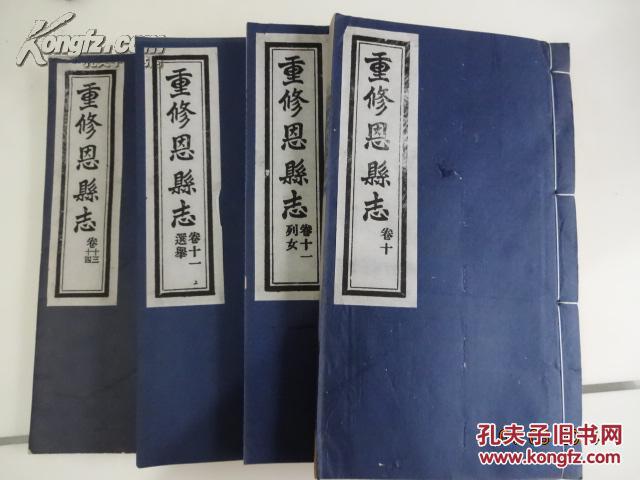 Kongfz.com
重修恩縣志
卷十三
十四
重修恩縣志
卷十一上
選舉
重修恩縣志
卷十一
列女
重修恩縣志
卷十
孔夫子旧书网
www.kongfz.com